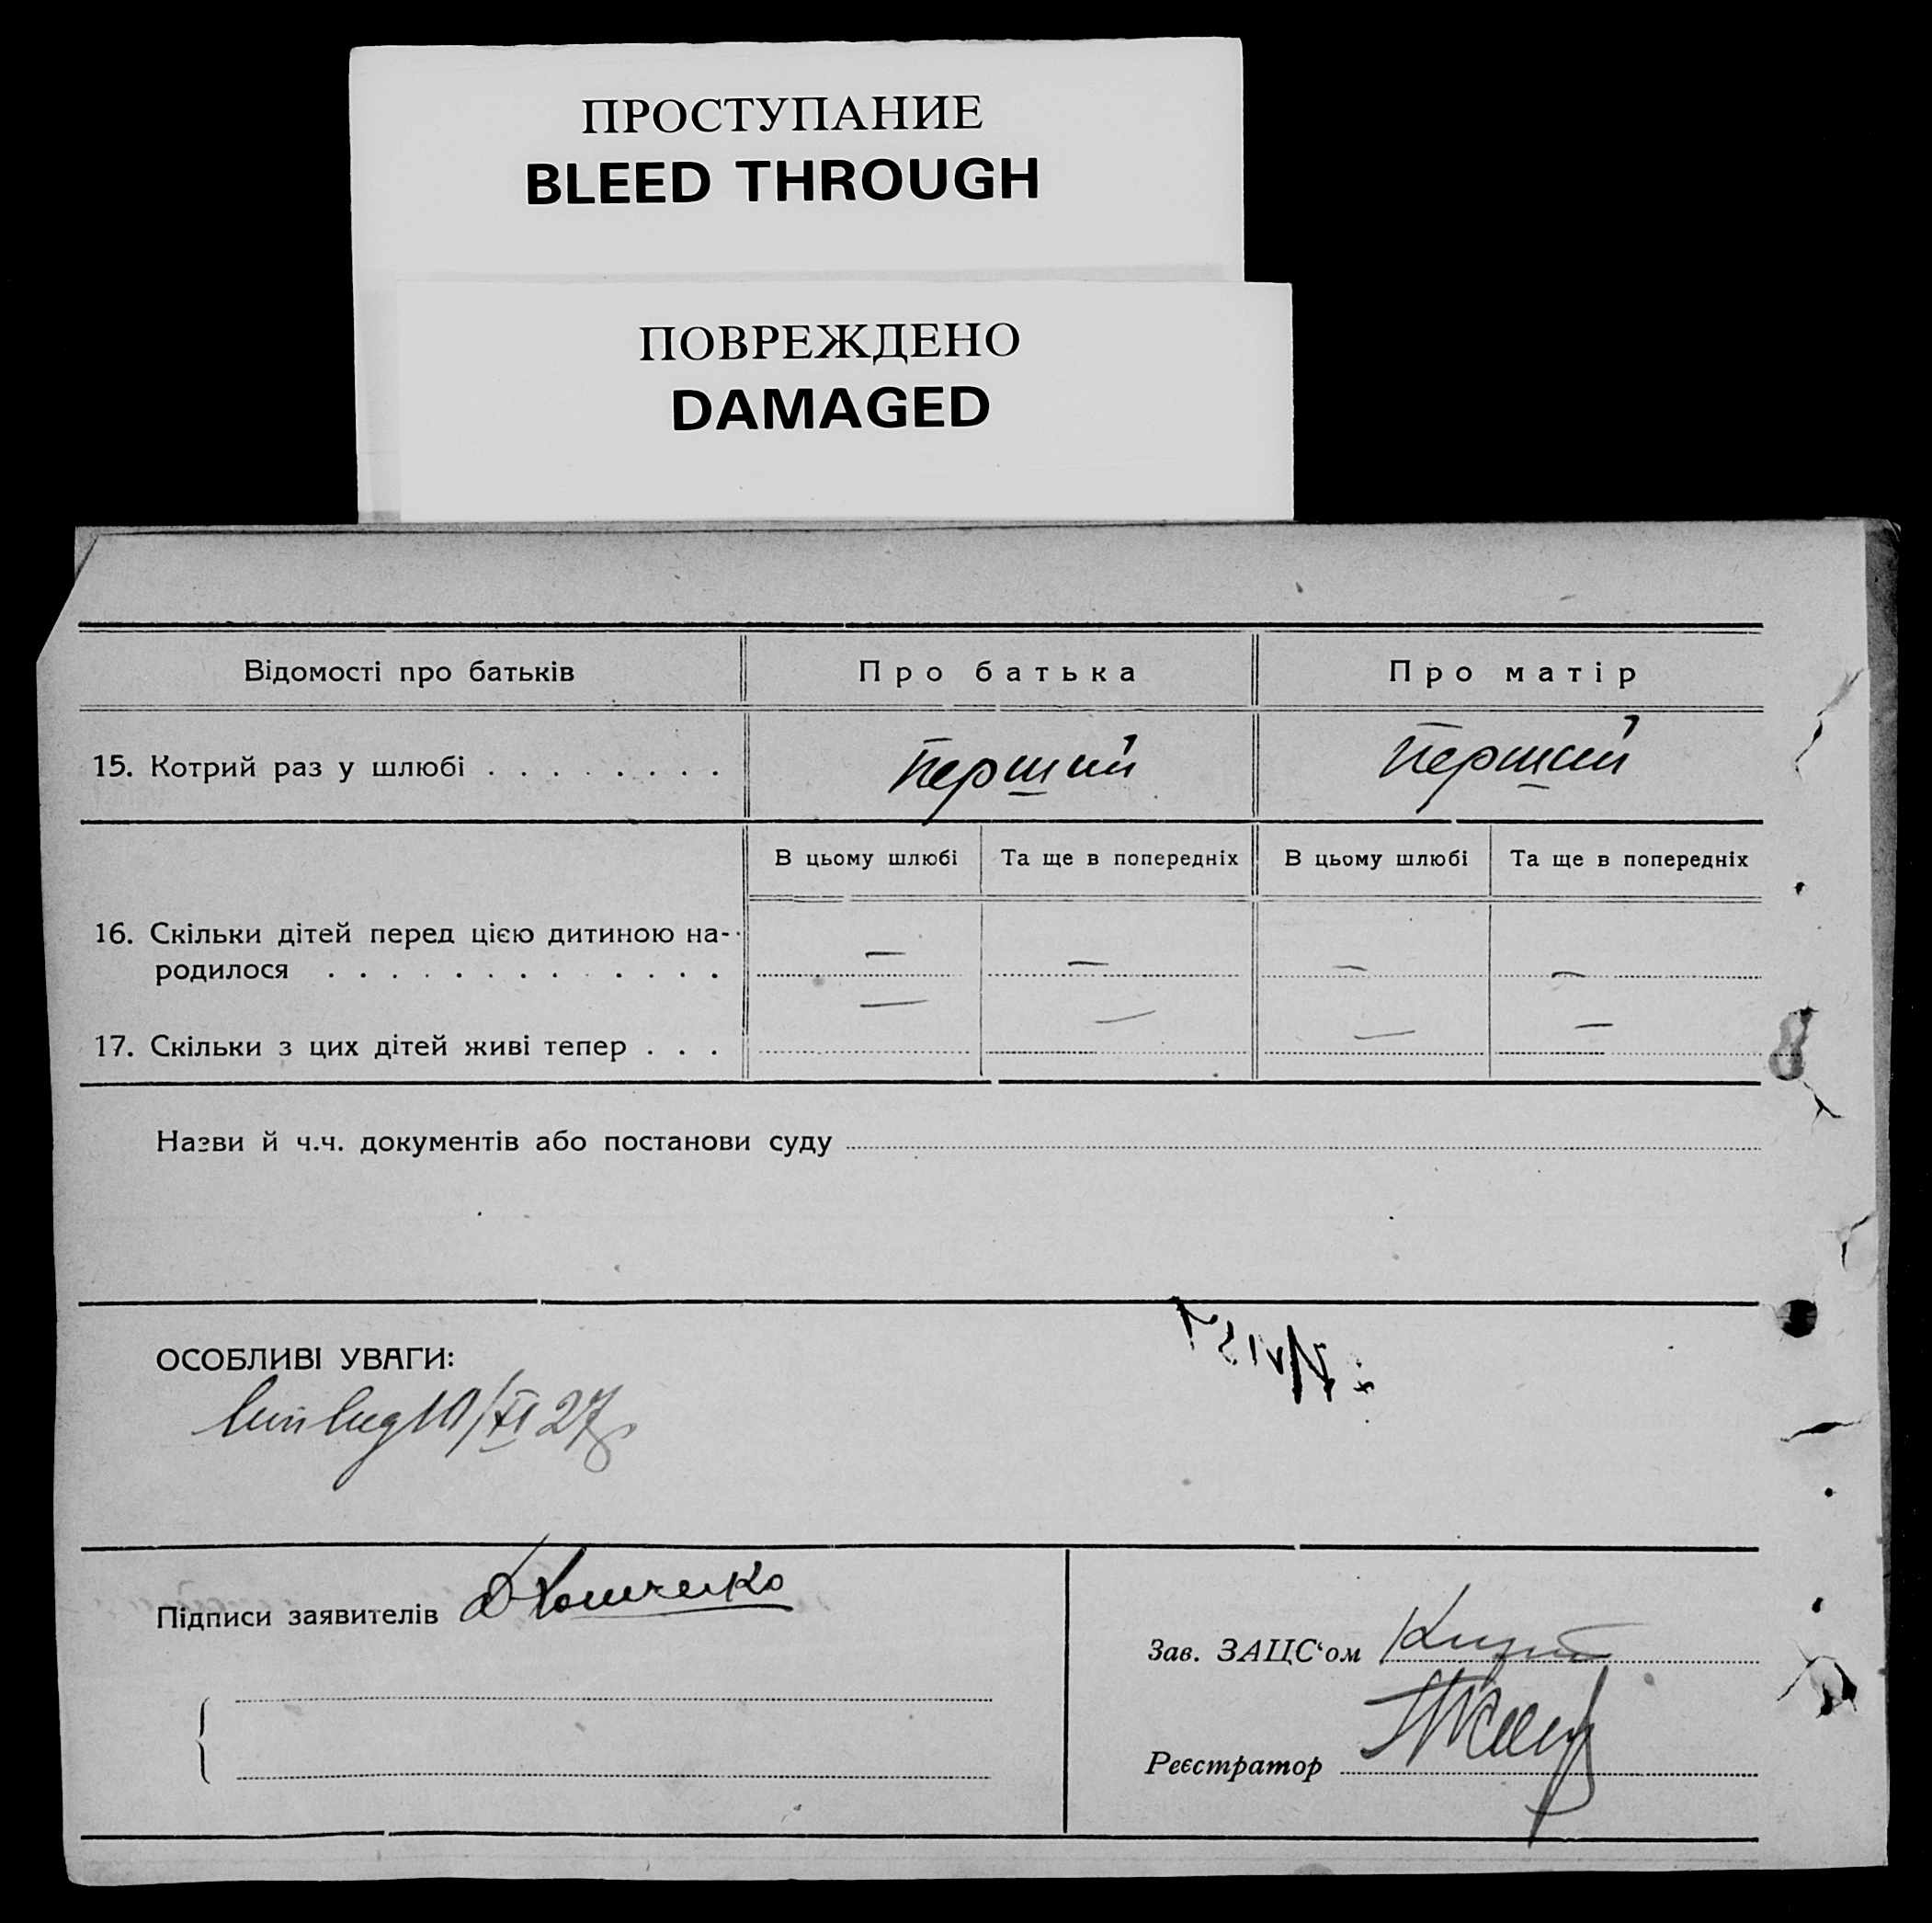 ПРОСТУПАНИЕ
BLEED THROUGH
ПОВРЕЖДЕНО
DAMAGED
Відомості про батьків Про батька Про матір
15. Котрий раз у шлюбі . . . . . . . . Перший Перший
В цьому шлюбі Та ще в попередніх В цьому шлюбі Та ще в попередніх
16. Скільки дітей перед цією дитиною на-
родилося . . . . . . . . . . . . . — — — —
17. Скільки з цих дітей живі тепер . . . — — — —
Назви й ч.ч. документів або постанови суду
ОСОБЛИВІ УВАГИ:
10/XI 27
Підписи заявителів
Зав. ЗАЦС‘ом
Реєстратор